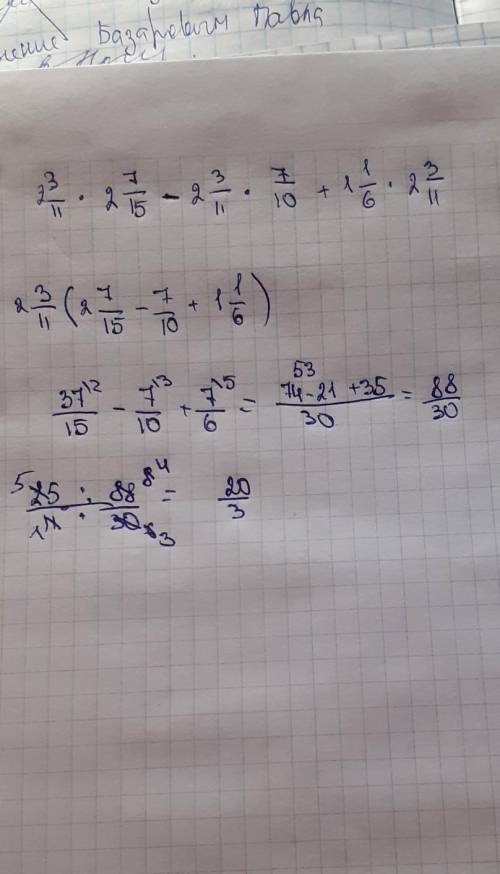 нение Базарович Павла
2 3/11 · 2 7/15 - 2 3/11 · 7/10 + 1 1/6 · 2 3/11
2 3/11 (2 7/15 - 7/10 + 1 1/6)
37\2/15 - 7\3/10 + 7\5/6 = 53 74-21+35/30 = 88/30
5 25/11 1 : 88/30 8 4 6 3 = 20/3